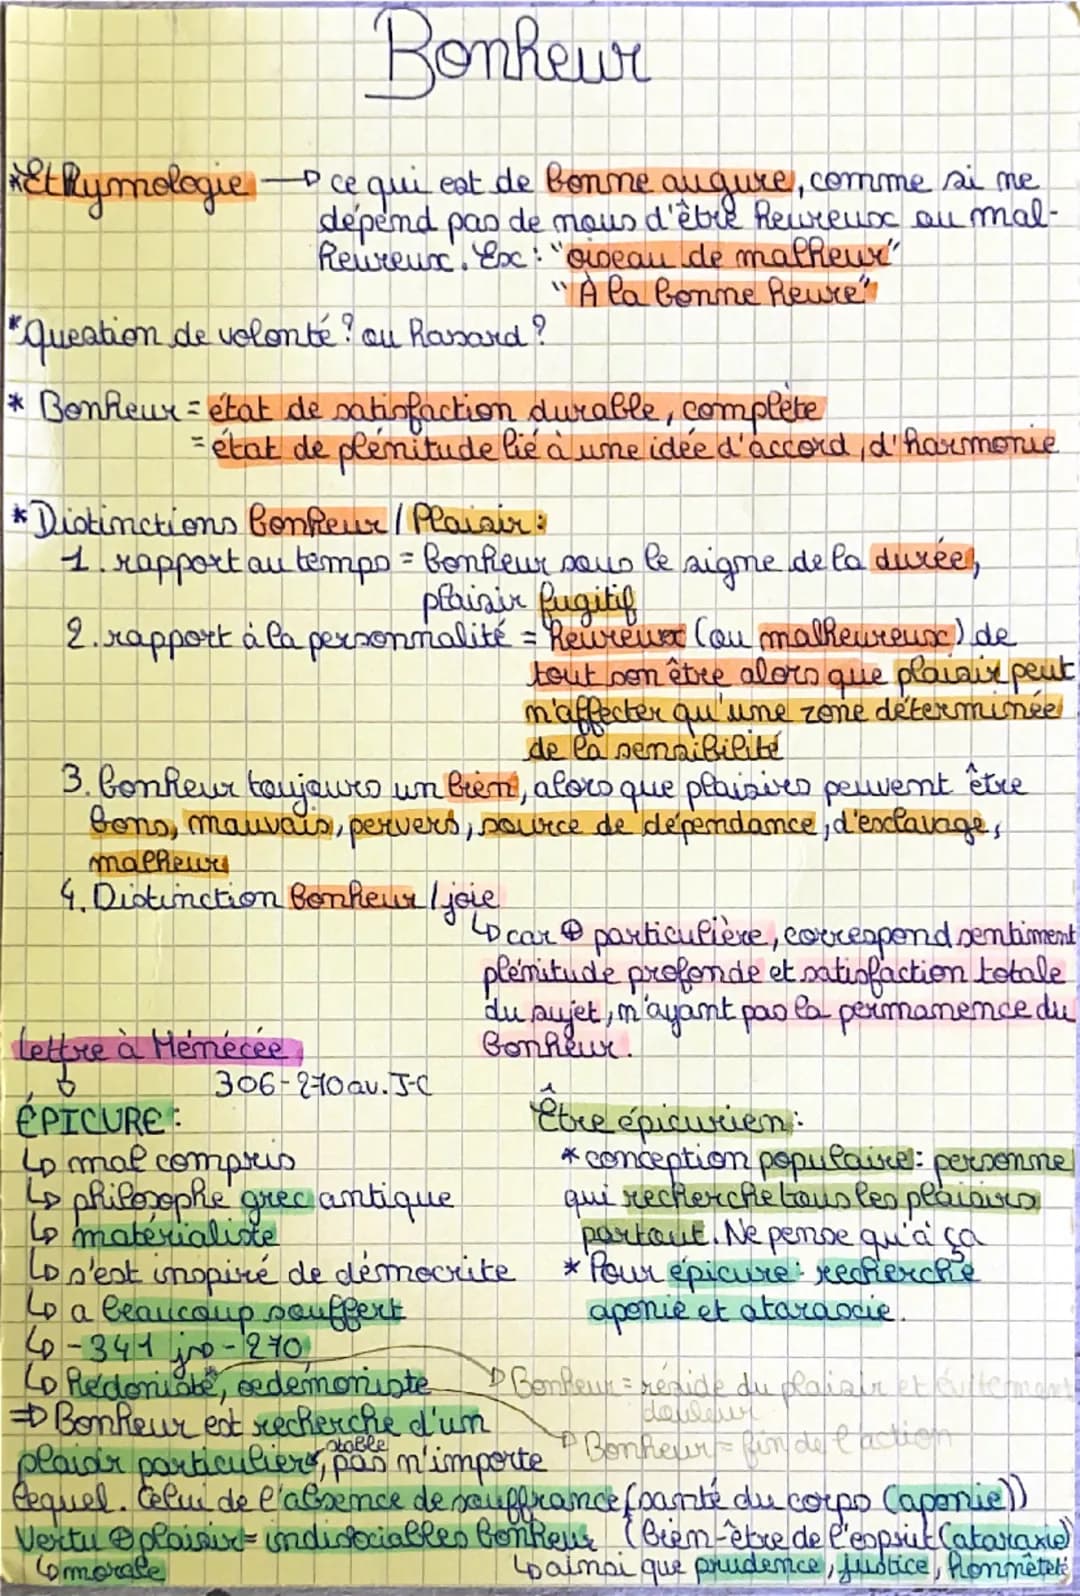 Bonheur
*Ethymologie → ce qui est de bonne augure, comme si ne
dépend pas de nous d'être heureux ou mal-
heureux. Ex : "oiseau de malheur"
"À la bonne heure"
*Question de volonté ? ou hasard ?
* Bonheur = état de satisfaction durable, complète
= état de plénitude lié à une idée d'accord, d'harmonie
* Distinctions bonheur / Plaisir :
1. rapport au temps = bonheur sous le signe de la durée,
plaisir fugitif
2. rapport à la personnalité = heureux (ou malheureux) de
tout son être alors que plaisir peut
n'affecter qu'une zone déterminée
de la sensibilité
3. bonheur toujours un bien, alors que plaisirs peuvent être
bons, mauvais, pervers, source de dépendance, d'esclavage,
malheur
4. Distinction bonheur / joie
↳ car ⊕ particulière, correspond sentiment
plénitude profonde et satisfaction totale
du sujet, n'ayant pas la permanence du
bonheur.
Lettre à Ménécée
306-270 av. J-C
ÉPICURE :
↳ mal compris
↳ philosophe grec antique
↳ matérialiste
↳ s'est inspiré de démocrite
↳ a beaucoup souffert
↳ -341 jsp -270
↳ hédoniste, oedémoniste
⇒ Bonheur est recherche d'un
plaisir particulier, stable, pas n'importe
lequel. Celui de l'absence de souffrance (santé du corps (aponie))
Vertu ⊕ plaisir = indissociables bonheur (bien-être de l'esprit (ataraxie)
↳ morale
↳ ainsi que prudence, justice, honnêteté
Être épicurien :
* conception populaire : personne
qui recherche tous les plaisirs
partout. Ne pense qu'à ça
* Pour épicure : recherche
aponie et ataraxie.
Bonheur = réside du plaisir et évitement
douleur
Bonheur = fin de l'action